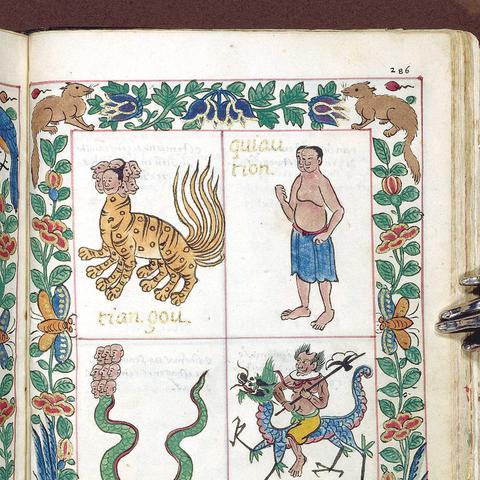 286
quiau
tion.
tian.gou.